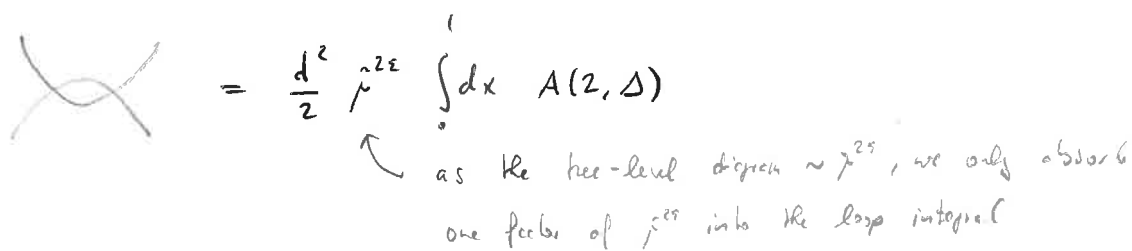 = d²/2 μ̃^{2ε} ∫₀¹ dx A(2, Δ)
as the tree-level diagram ~ μ̃^{2ε}, we only absorb
one factor of μ̃^{2ε} into the loop integral